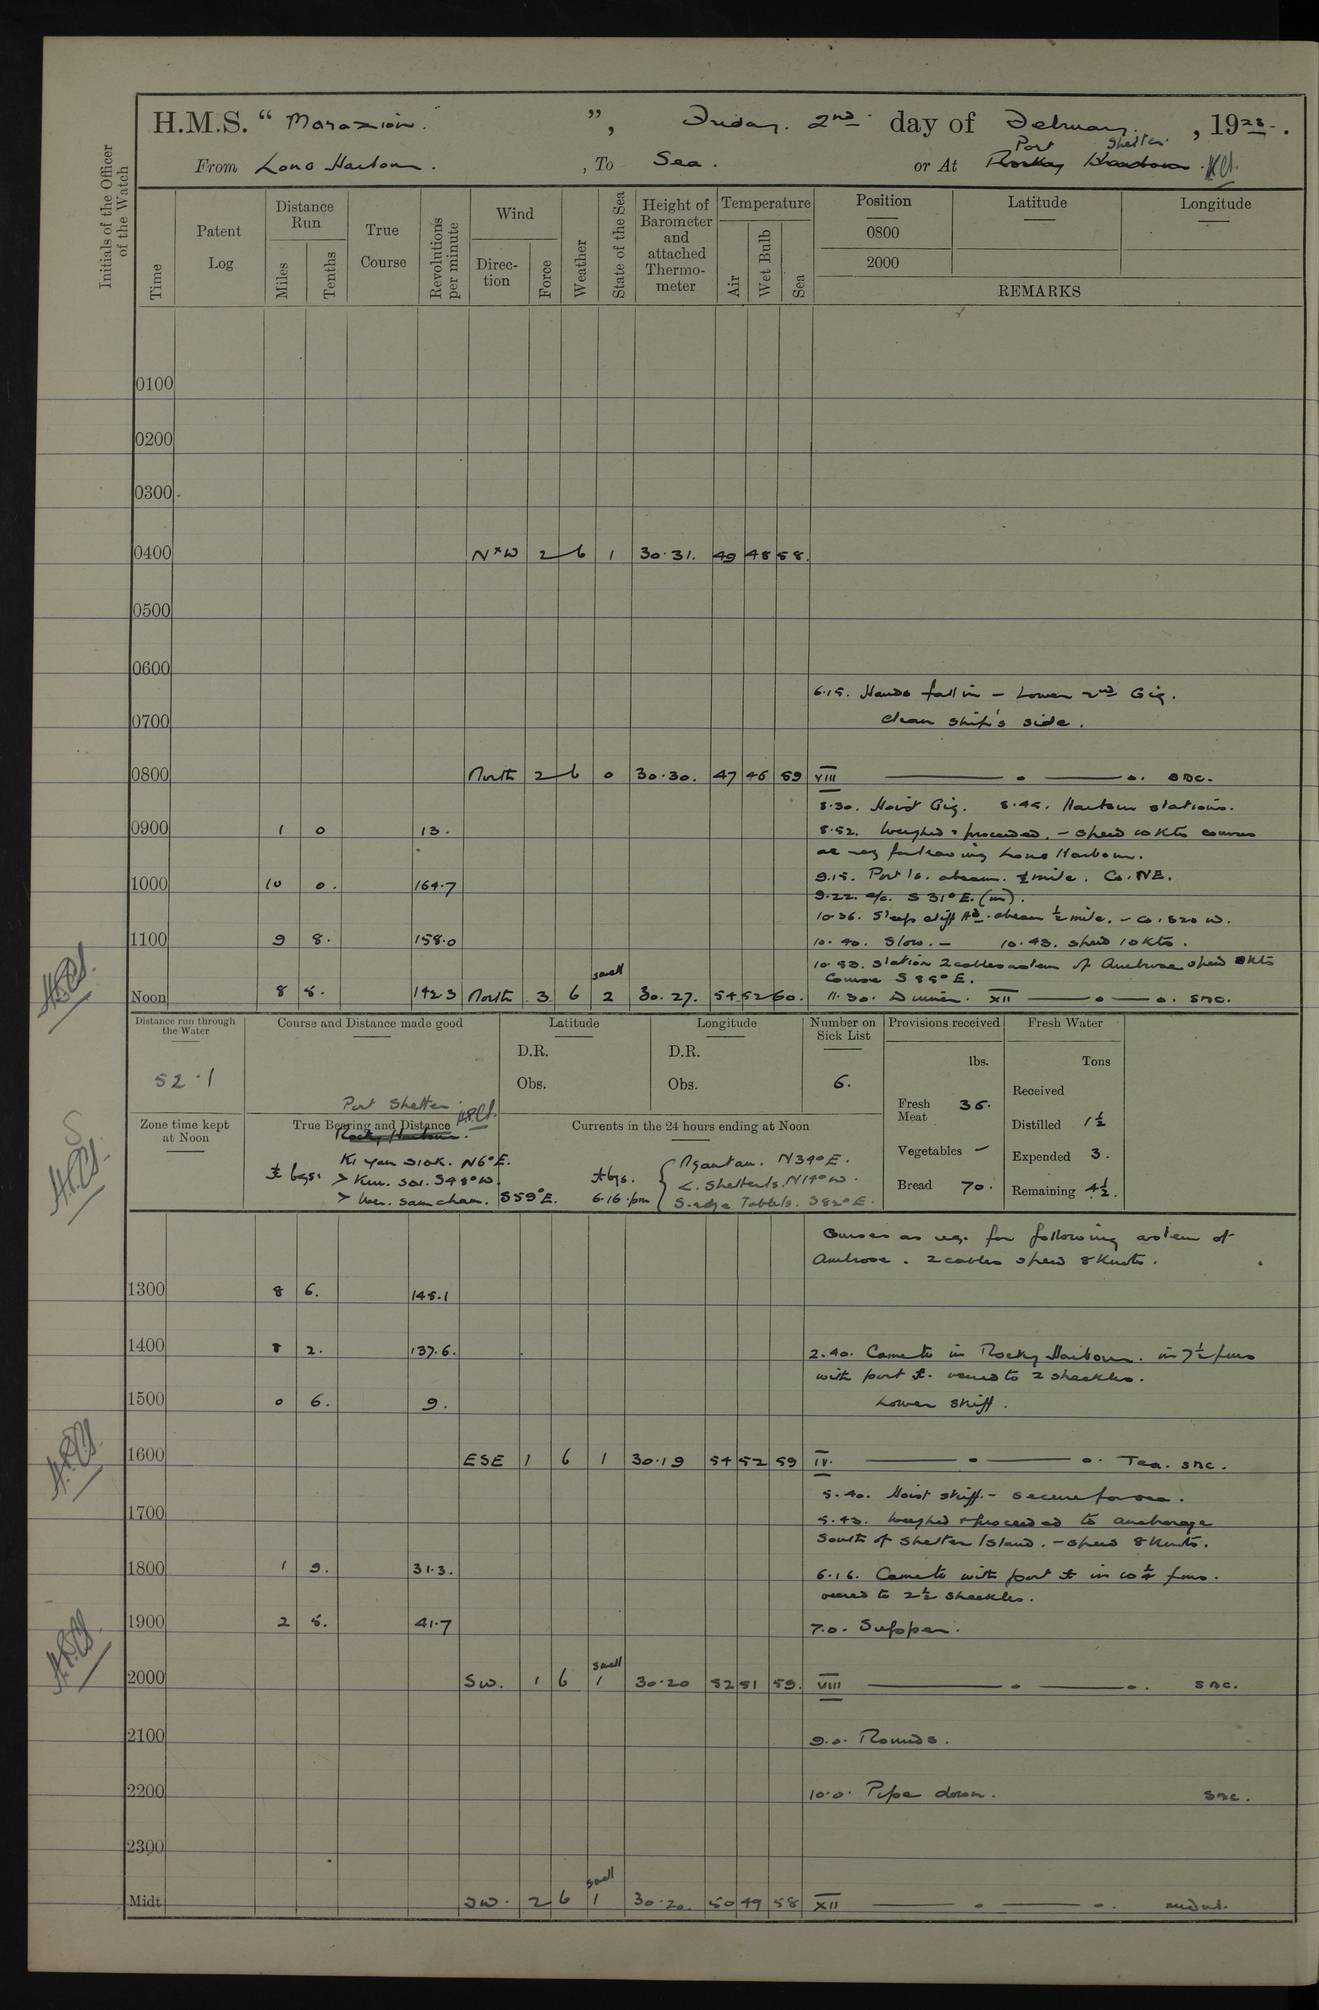 H.M.S. “ Marazion. ”, Friday. 2nd day of February. , 1923.
Port Shelter.
From Long Harbour. , To Sea. or At Rocky Harbour.
Initials of the Officer of the Watch
Time Patent Log Distance Run Miles Tenths True Course Revolutions per minute Wind Direc-tion Force Weather State of the Sea Height of Barometer and attached Thermo-meter Temperature Air Wet Bulb Sea Position Latitude Longitude
0800
2000
REMARKS
0100
0200
0300
0400 N×W 2 b 1 30.31. 49 48 58.
0500
0600
6.15. Hands fall in – Lower 2nd Gig.
0700 clean ship's side.
0800 North 2 b 0 30.30. 47 46 59 VIII
8.30. Hoist Gig. 8.45. Harbour stations.
0900 1 0 13. 8.52. Weighed & proceeded. – speed 10 Kts courses
as req for leaving Long Harbour.
9.15. Port Is. abeam. ½ mile. Co. NE.
1000 10 0. 164.7 9.22. a/c. S 31° E. (m).
10.36. Steep cliff Hd. abeam ½ mile. – Co. S20 W.
1100 9 8. 158.0 10.40. Slow. – 10.43. speed 10 Kts.
10.53. Station 2 cables astern of Ambrose speed 8 Kts
swell Course S 85° E.
Noon 8 8. 142.3 North 3 b 2 30.27. 54 52 60. 11.30. Dinner. XII
Distance run through the Water Course and Distance made good Latitude Longitude Number on Sick List Provisions received Fresh Water
52.1 D.R. D.R. 6. lbs. Tons
Obs. Obs. Received
Port Shelter. Fresh Meat 36. Distilled 1½
Zone time kept at Noon True Bearing and Distance Currents in the 24 hours ending at Noon
Rocky Harbour.
Vegetables – Expended 3.
Bread 70. Remaining 4½.
Ki Yau Siok. N6°E. N34°E.
bgs. Kiu. Sai. S48°W. bgs. Shelter Is. N14°W.
S59°E. 6.16. pm Table Is. S82°E.
Courses as req. for following astern of
Ambrose. 2 cables speed 8 Knots.
1300 8 6. 145.1
1400 8 2. 137.6. 2.40. Came to in Rocky Harbour. in 7½ fms
with port . veered to 2 shackles.
1500 0 6. 9. Lower skiff.
1600 ESE 1 b 1 30.19 54 52 59 IV. Tea.
5.40. Hoist skiff. – secure for sea.
1700 5.43. Weighed & proceeded to anchorage
South of Shelter Island. – speed 8 Knots.
1800 1 9. 31.3. 6.16. Came to with port in 10¼ fms.
veered to 2½ shackles.
1900 2 5. 41.7 7.0. Supper.
swell
2000 SW. 1 b 1 30.20 52 51 59. VIII
2100 9.0. Rounds.
2200 10.0. Pipe down.
2300
swell
Midt SW. 2 b 1 30.20. 50 49 58 XII